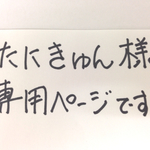 たにきゅん様
専用ページです